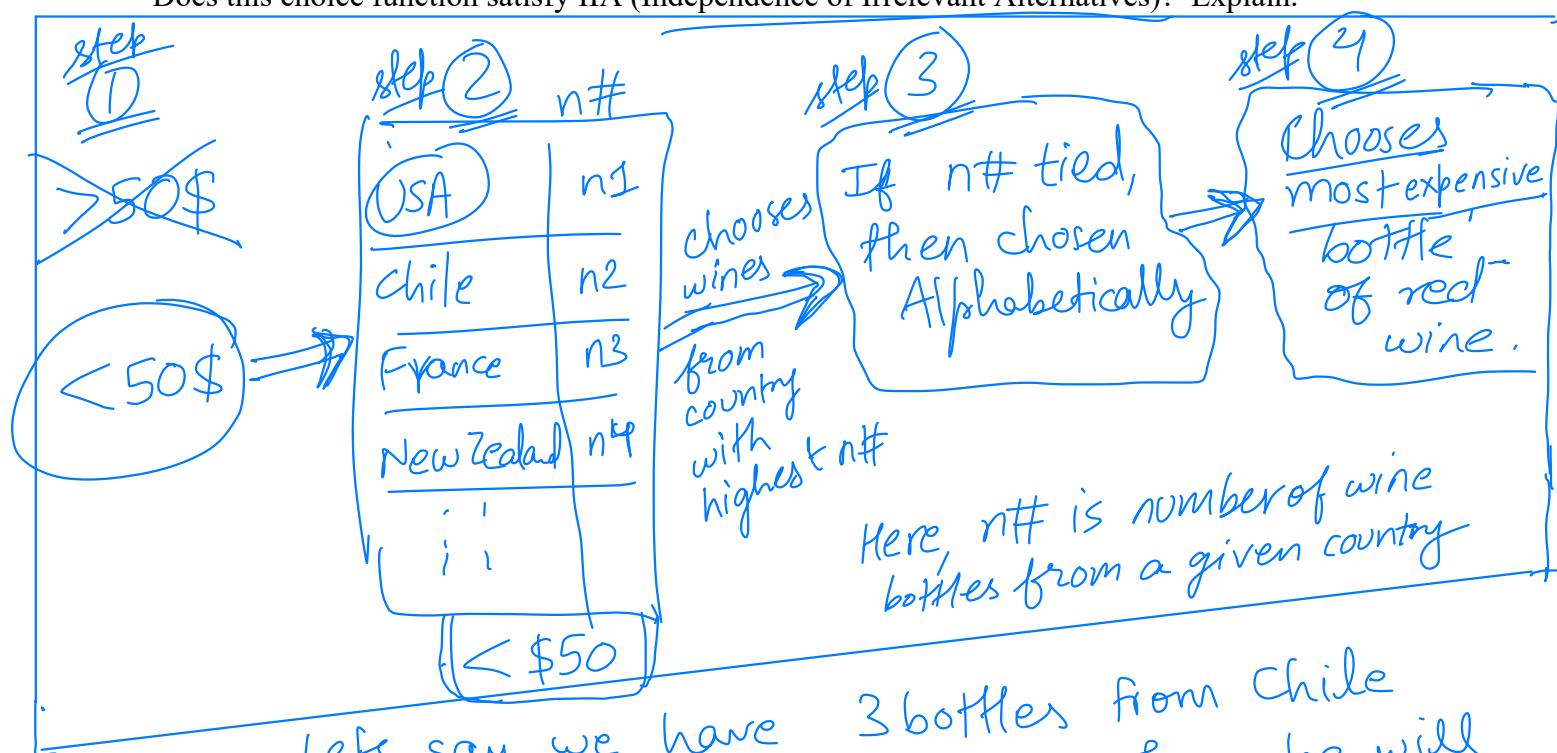 Does this choice function satisfy IIA (Independence of Irrelevant Alternatives)? Explain.
step
1
>50$
<50$
step 2
n#
USA n1
Chile n2
France n3
New Zealand n4
< $50
chooses
wines
from
country
with
highest n#
step 3
If n# tied,
then chosen
Alphabetically
step 4
Chooses
most expensive
bottle
of red
wine.
Here, n# is number of wine
bottles from a given country
Lets say we have 3 bottles from Chile
he will